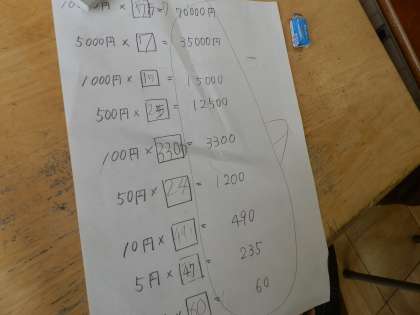 円 × = 70000円
5000円 × 7 = 35000円
1000円 × = 15000
500円 × 25 = 12500
100円 × 3300 = 3300
50円 × 24 = 1200
10円 × = 490
5円 × 47 = 235
× 60 = 60